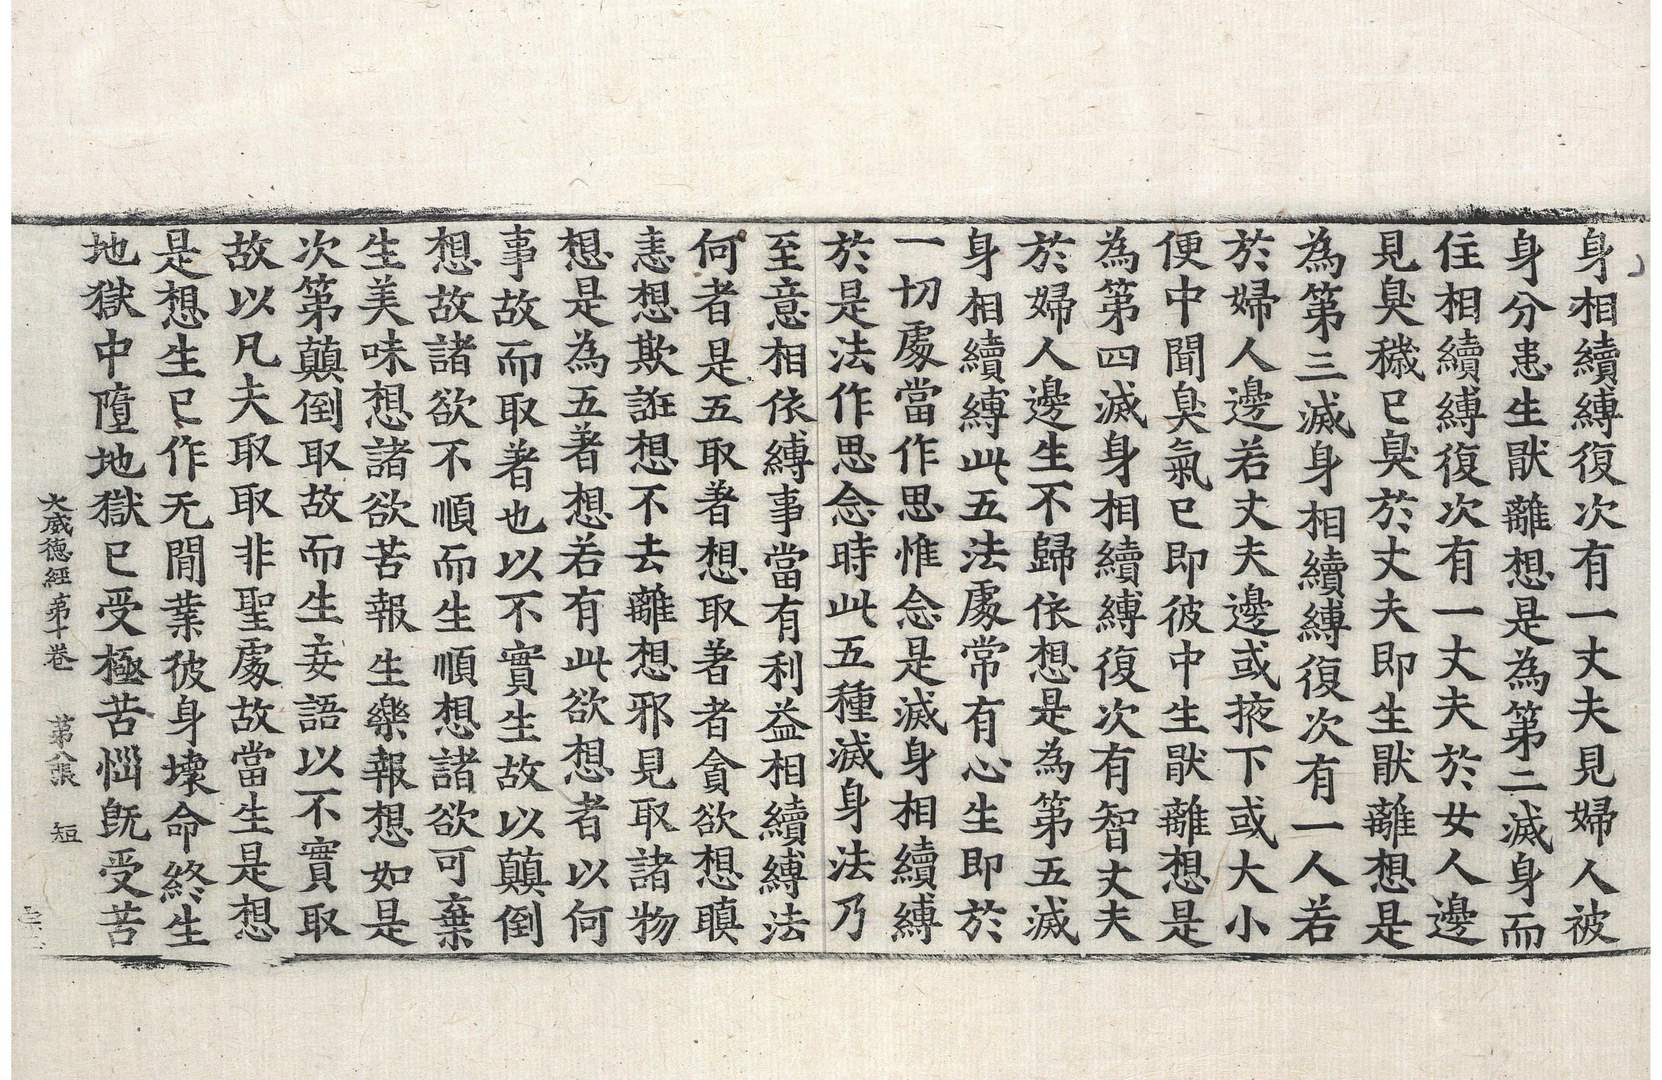 身相續縛復次有一丈夫見婦人被
身分患生猒離想是為第二滅身而
住相續縛復次有一丈夫於女人邊
見臭穢已臭於丈夫即生猒離想是
為第三滅身相續縛復次有一人若
於婦人邊若丈夫邊或掖下或大小
便中聞臭氣已即彼中生猒離想是
為第四滅身相續縛復次有智丈夫
於婦人邊生不歸依想是為第五滅
身相續縛此五法處常有心生即於
一切處當作思惟念是滅身相續縛
於是法作思念時此五種滅身法乃
至意相依縛事當有利益相續縛法
何者是五取著想取著者貪欲想瞋
恚想欺誑想不去離想邪見取諸物
想是為五著想若有此欲想者以何
事故而取著也以不實生故以顛倒
想故諸欲不順而生順想諸欲可棄
生美味想諸欲苦報生樂報想如是
次第顛倒取故而生妄語以不實取
故以凡夫取取非聖處故當生是想
是想生已作无間業彼身壞命終生
地獄中墮地獄已受極苦惱既受苦
大威德經第十卷 第八張 短